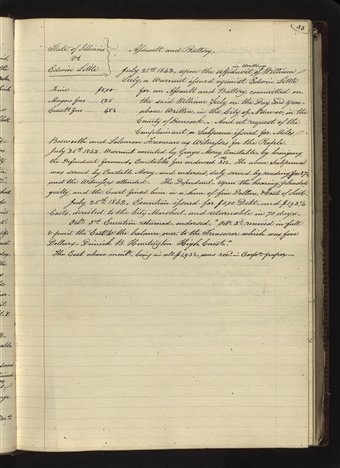 33
State of Illinois } Assault and Battery.
vs
Edwin Little } July 21st 1842, upon the Affidavit in writing of William
Seely, a Warrant issued against Edwin Little
Fine $5,00 for an Assault and Battery, committed on
Mayors fees the said William Seely on the Day and Year
Const's fees above written, in the City of Nauvoo, in the
County of Hancock. And at request of the
Complainant a Subpoena issued for Miles
and Soloman Freeman as Witnesses for the People
July 25th 1842. Warrant executed by George Morey Constable by bringing
the Defendant forward, Constables fees endorsed The above Subpoena
was served by Constable Morey and endorsed, duly served by reading fees
and the Witnesses attended. The Defendant, upon the hearing, pleaded
guilty, and the Court fined him in a sum of five Dollars, & Costs of Court.
July 25th 1842. Execution issued for $5,00 Debt, and
Costs, directed to the City Marshal, and returnable in 70 days.
Execution returned, endorsed, received in full
& paid the Costs & the balance over to the Treasurer which was five
Dollars. Dimick B. Huntington High Const.
The Cost above ment. being in all was in Corpn. papers